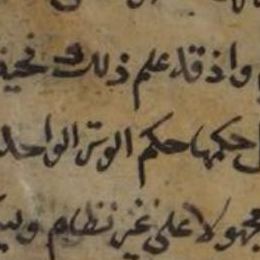 واذ قد علم ذلك
حكمها حكم الوتر الواحد
مجهولا على غير نظام